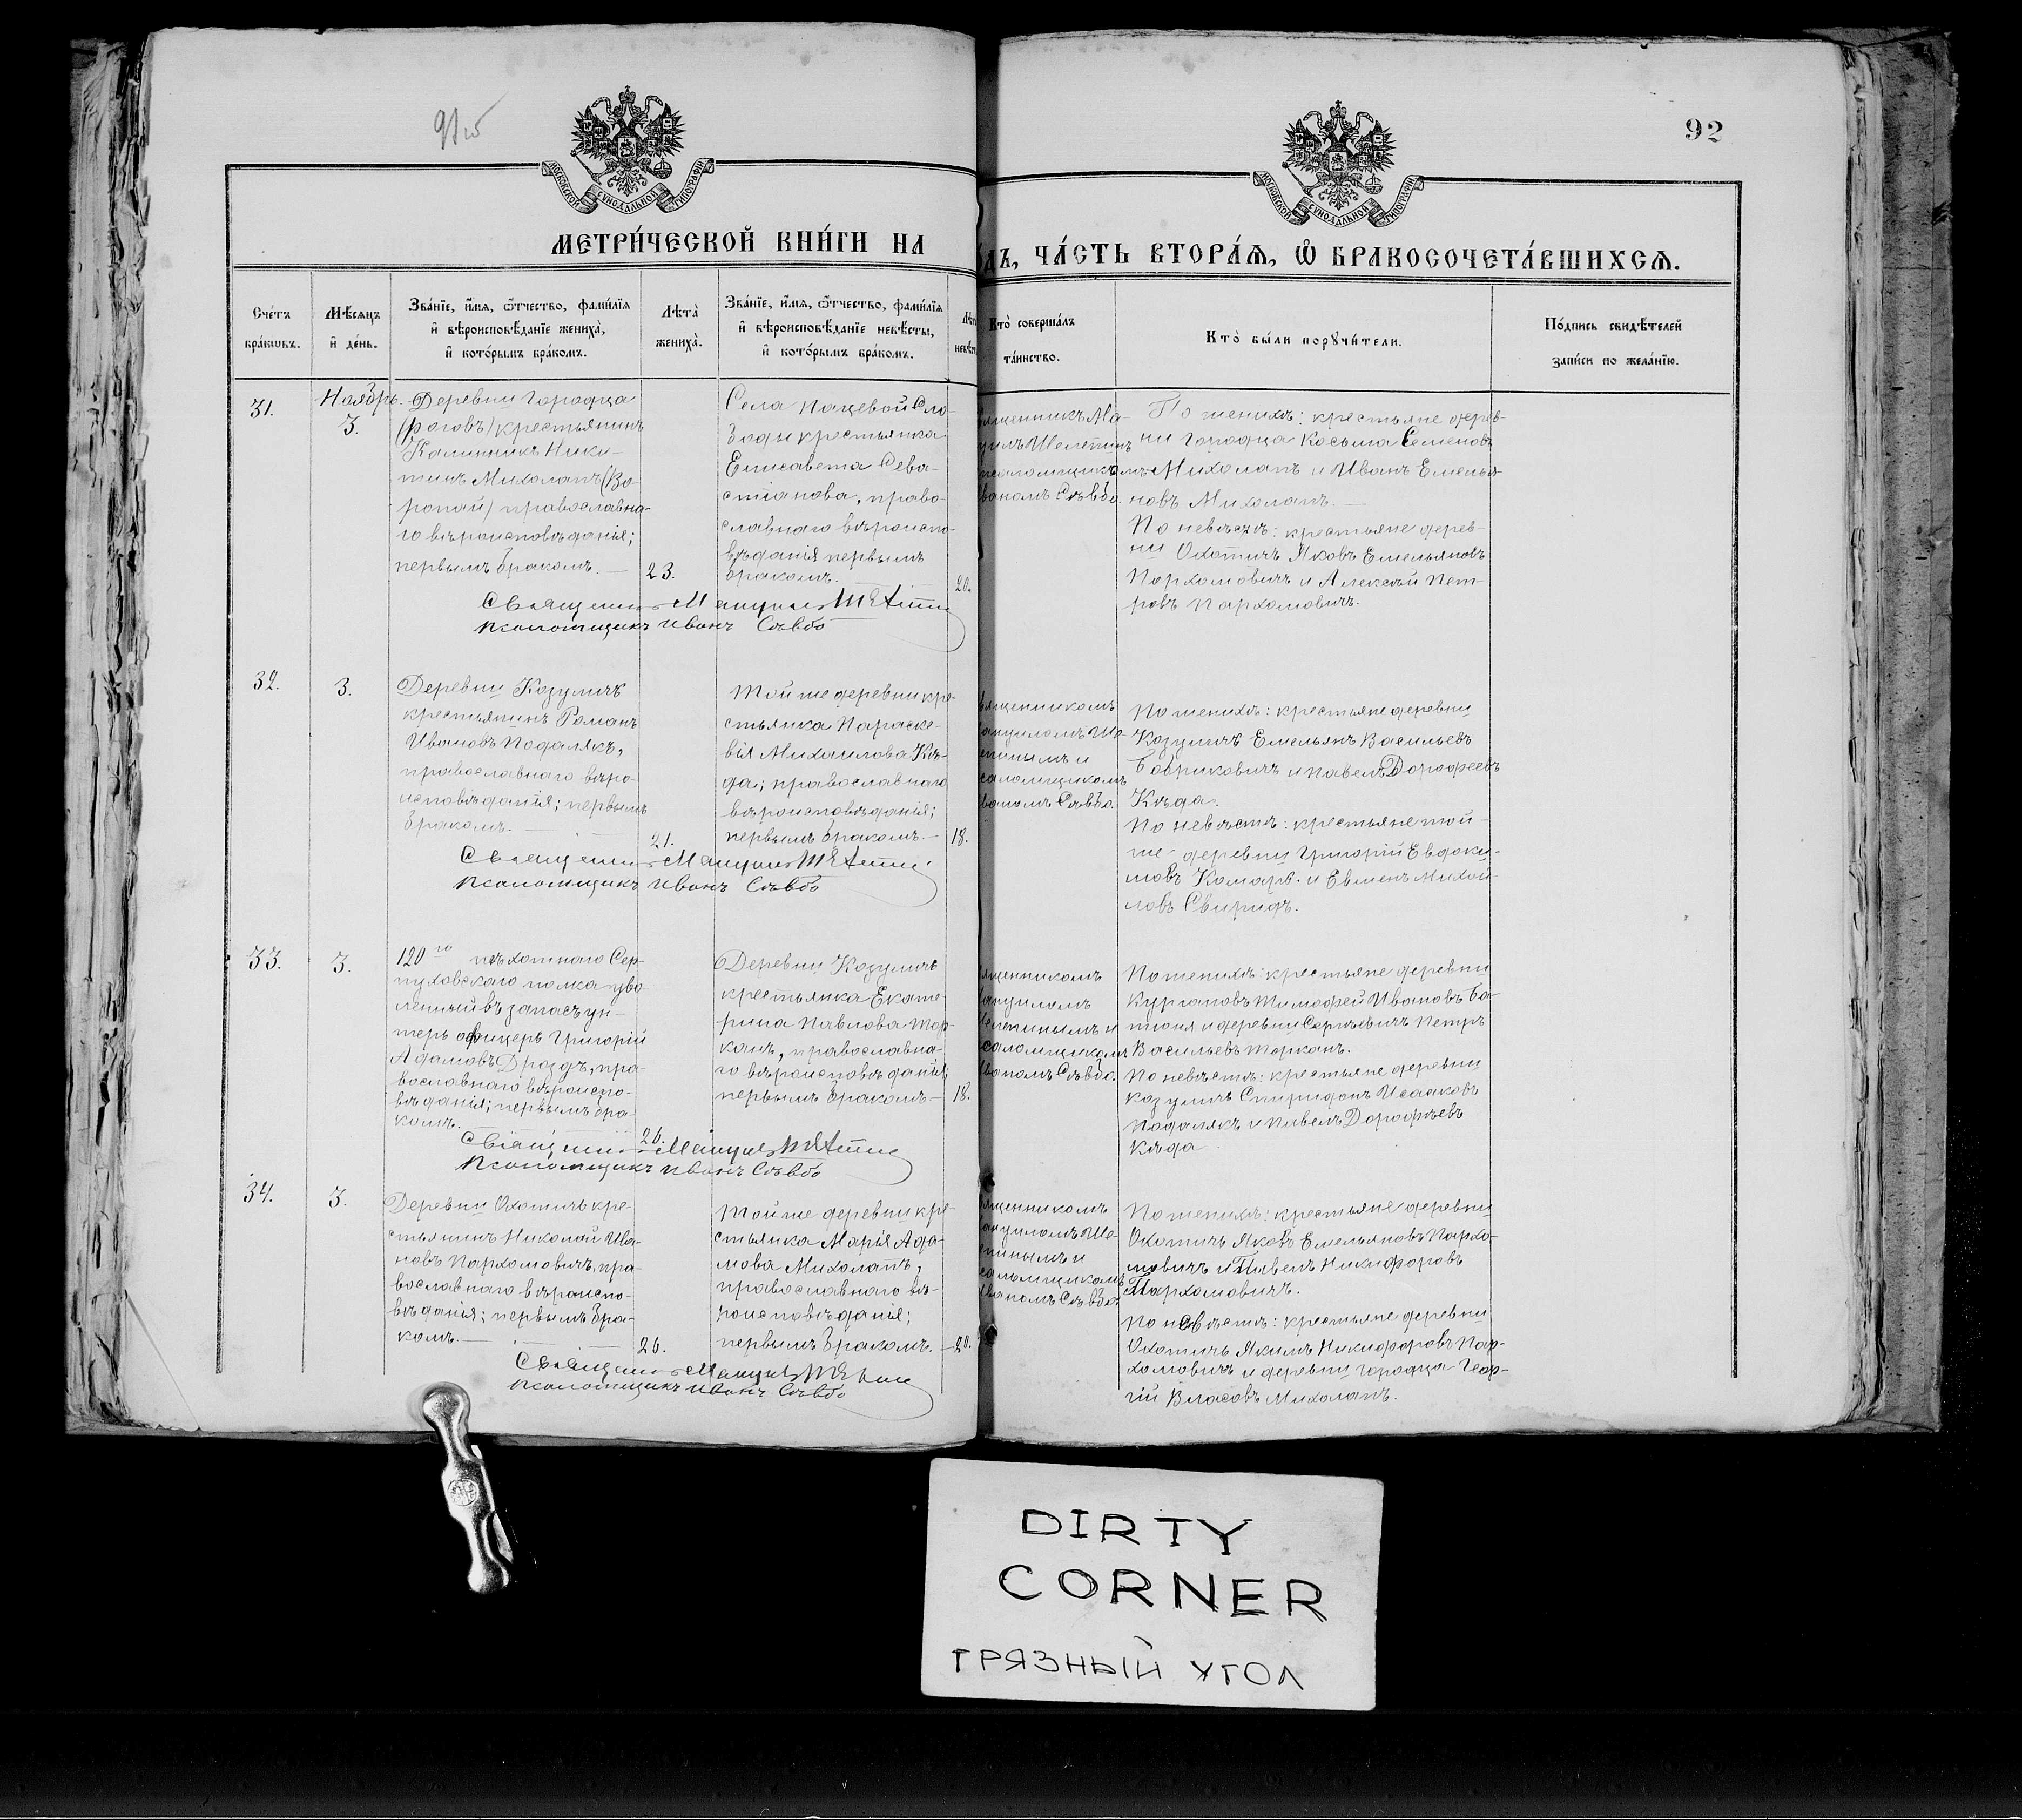 92
МОСКОВСКОЙ СѴНОДАЛЬНОЙ ТИПОГРАФІИ
МОСКОВСКОЙ СѴНОДАЛЬНОЙ ТИПОГРАФІИ
МЕТРИ́ЧЕСКОЙ КНИ́ГИ НА
ДЪ, ЧА́СТЬ ВТОРА́Ѧ, Ѽ БРАКОСОЧЕТА́ВШИХСѦ.
Сче́тъ
бра́кωвъ.
Мѣ́сѧцъ
и҆ де́нь.
Зва́нїе, и҆́мѧ, ѻ҆́тчество, фами́лїѧ
и҆ вѣроисповѣ́данїе жениха̀,
и҆ кото́рымъ бра́комъ.
Лѣта̀
жениха̀.
Зва́нїе, и҆́мѧ, ѻ҆́тчество, фами́лїѧ
и҆ вѣроисповѣ́данїе невѣ́сты,
и҆ кото́рымъ бра́комъ.
Кто̀ соверша́лъ
та́инство.
Кто̀ бы́ли порꙋчи́тели.
По́дпись свидѣ́телей
за́писи по жела́нїю.
31.
Ноябрь.
3.
Деревни Городца
(роговъ) крестьянинъ
Калинникъ Ники-
тинъ Михолапъ (Во-
ропай) православна-
го вѣроисповѣданія;
первымъ бракомъ. —
23.
Села Пацевой Сло-
боды крестьянка
Елисавета Сева-
стіанова, право-
славнаго вѣроиспо-
вѣданія первымъ
бракомъ. —
20.
Священникъ Мануилъ
Псаломщикъ Иванъ Съвбо
По женихѣ: крестьяне дерев-
ни Городца Косьма Семеновъ
Михолапъ и Иванъ Емелья-
новъ Михолапъ. —
По невѣстѣ: крестьяне дерев-
ни Охотичъ Яковъ Емельяновъ
Пархомовичъ и Алексѣй Пет-
ровъ Пархомовичъ.
32.
3.
Деревни Козуличъ
крестьянинъ Романъ
Ивановъ Подалякъ,
православнаго вѣро-
исповѣданія; первымъ
бракомъ. —
21.
Той же деревни кре-
стьянка Параске-
вія Михаилова Кѣ-
да; православнаго
вѣроисповѣданія;
первымъ бракомъ. —
18.
Священникъ Мануилъ
Псаломщикъ Иванъ Съвбо
По женихѣ: крестьяне деревни
Козуличъ Емельянъ Васильевъ
Бобриковичъ и Павелъ Дорофеевъ
Кѣда.
По невѣстѣ: крестьяне той-
же деревни Григорій Евдоки-
мовъ Комаръ и Евменъ Михай-
ловъ Свиридъ.
33.
3.
120го пѣхотнаго Сер-
пуховскаго полка уво-
ленный въ запасъ ун-
теръ офицеръ Григорій
Адамовъ Дроздъ, пра-
вославнаго вѣроиспо-
вѣданія; первымъ бра-
комъ.
26.
Деревни Козуличъ
крестьянка Екате-
рина Павлова Тор-
канъ, православна-
го вѣроисповѣданія
первымъ бракомъ —
18.
Священникъ Мануилъ
Псаломщикъ Иванъ Съвбо
По женихѣ: крестьяне деревни
Кургановъ Тимофей Ивановъ Ба-
тюня и деревни Сергѣевичъ Петръ
Васильевъ Торканъ.
По невѣстѣ: крестьяне деревни
Козуличъ Спиридонъ Исааковъ
Подалякъ и Павелъ Дорофѣевъ
Кѣда
34.
3.
Деревни Охотичъ кре-
стьянинъ Николай Ива-
новъ Пархомовичъ, пра-
вославнаго вѣроиспо-
вѣданія; первымъ бра-
комъ. —
26.
Той же деревни кре-
стьянка Марія Ада-
мова Михолапъ,
православнаго вѣ-
роисповѣданія;
первымъ бракомъ. —
20.
Священникъ Мануилъ
Псаломщикъ Иванъ Съвбо
По женихѣ: крестьяне деревни
Охотичъ Яковъ Емельяновъ Пархо-
мовичъ и Павелъ Никифоровъ
Пархомовичъ.
По невѣстѣ: крестьяне деревни
Охотичъ Якимъ Никифоровъ Пар-
хомовичъ и деревни Городца Геор-
гій Власовъ Михолапъ.
DIRTY
CORNER
ГРЯЗНЫЙ УГОЛ